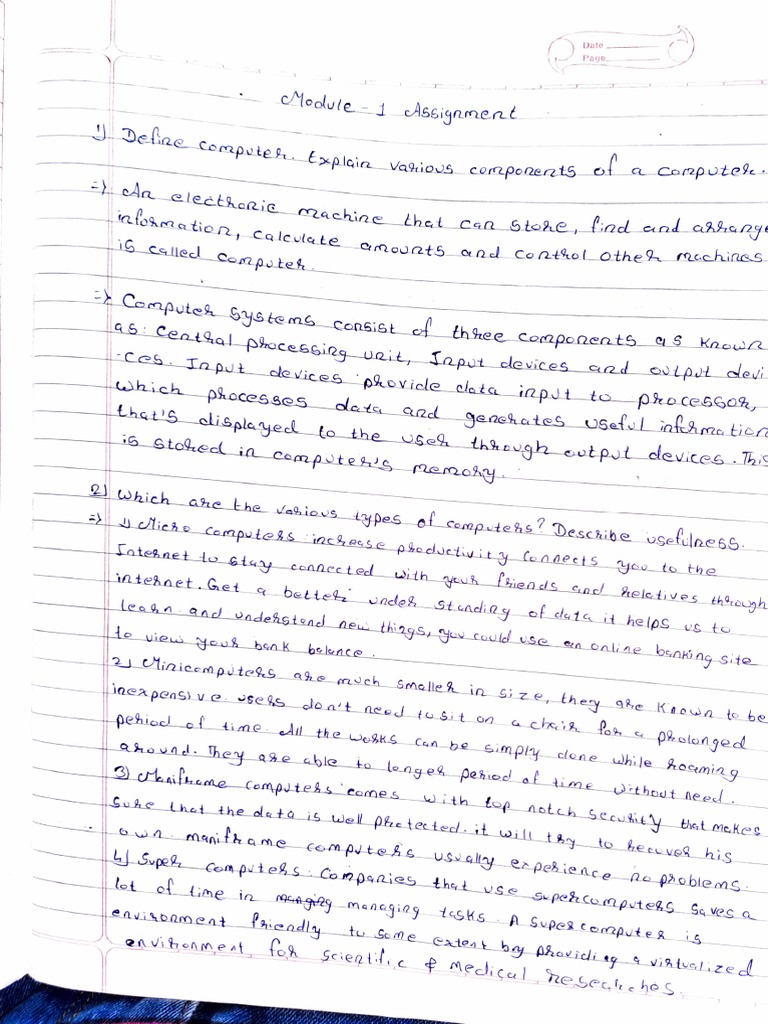 Date
Page
Module - 1 Assignment
1) Define computer. Explain various components of a computer.
=> An electronic machine that can store, find and arrange
information, calculate amounts and control other machines
is called computer.
=> Computer systems consist of three components as known
as: Central processing unit, Input devices and output devi
-ces. Input devices provide data input to processor,
which processes data and generates useful information
that's displayed to the user through output devices. This
is stored in computer's memory.
2) Which are the various types of computers? Describe usefulness.
=> 1) Micro computers increase productivity connects you to the
Internet to stay connected with your friends and relatives through
internet. Get a better under standing of data it helps us to
learn and understand new things, you could use an online banking site
to view your bank balance.
2) Minicomputers are much smaller in size, they are known to be
inexpensive. users don't need to sit on a chair for a prolonged
period of time. All the works can be simply done while roaming
around. They are able to longer period of time without need.
3) Mainframe computers comes with top notch security that makes
sure that the data is well protected. it will try to recover his
own. maniframe computers usually experience no problems.
4) Super computers: Companies that use supercomputers saves a
lot of time in managing tasks. A supercomputer is
environment friendly to some extent by providing a virtualized
environment for scientific & medical researches.